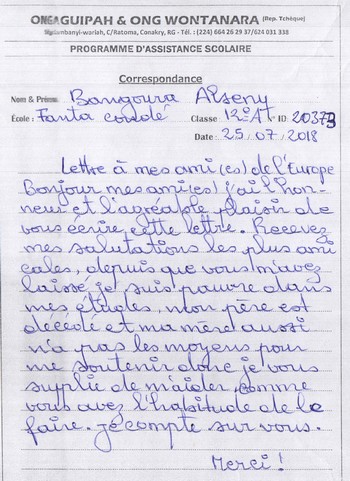 AGUIPAH & ONG WONTANARA (Rep. Tchèque)
C/Ratoma, Conakry, RG - Tél. : (224) 664 26 29 37/624 031 338
PROGRAMME D'ASSISTANCE SCOLAIRE
Correspondance
Nom & Prénom Bangoura Alseny
École : Fanta condé Classe 12è N° ID: 20373
Date: 25/07/2018
Lettre à mes ami(es) de l'Europe
Bonjour mes ami(es) j'ai l'hon-
neur et l'agréable plaisir de
vous écrire cette lettre. Recevez
mes salutations les plus ami
cales, depuis que vous m'avez
laissé je suis pauvre dans
mes études, mon père est
décédé et ma mère aussi
n'a pas les moyens pour
me soutenir donc je vous
suplie de m'aider comme
vous avez l'habitude de le
faire. je compte sur vous.
Merci!